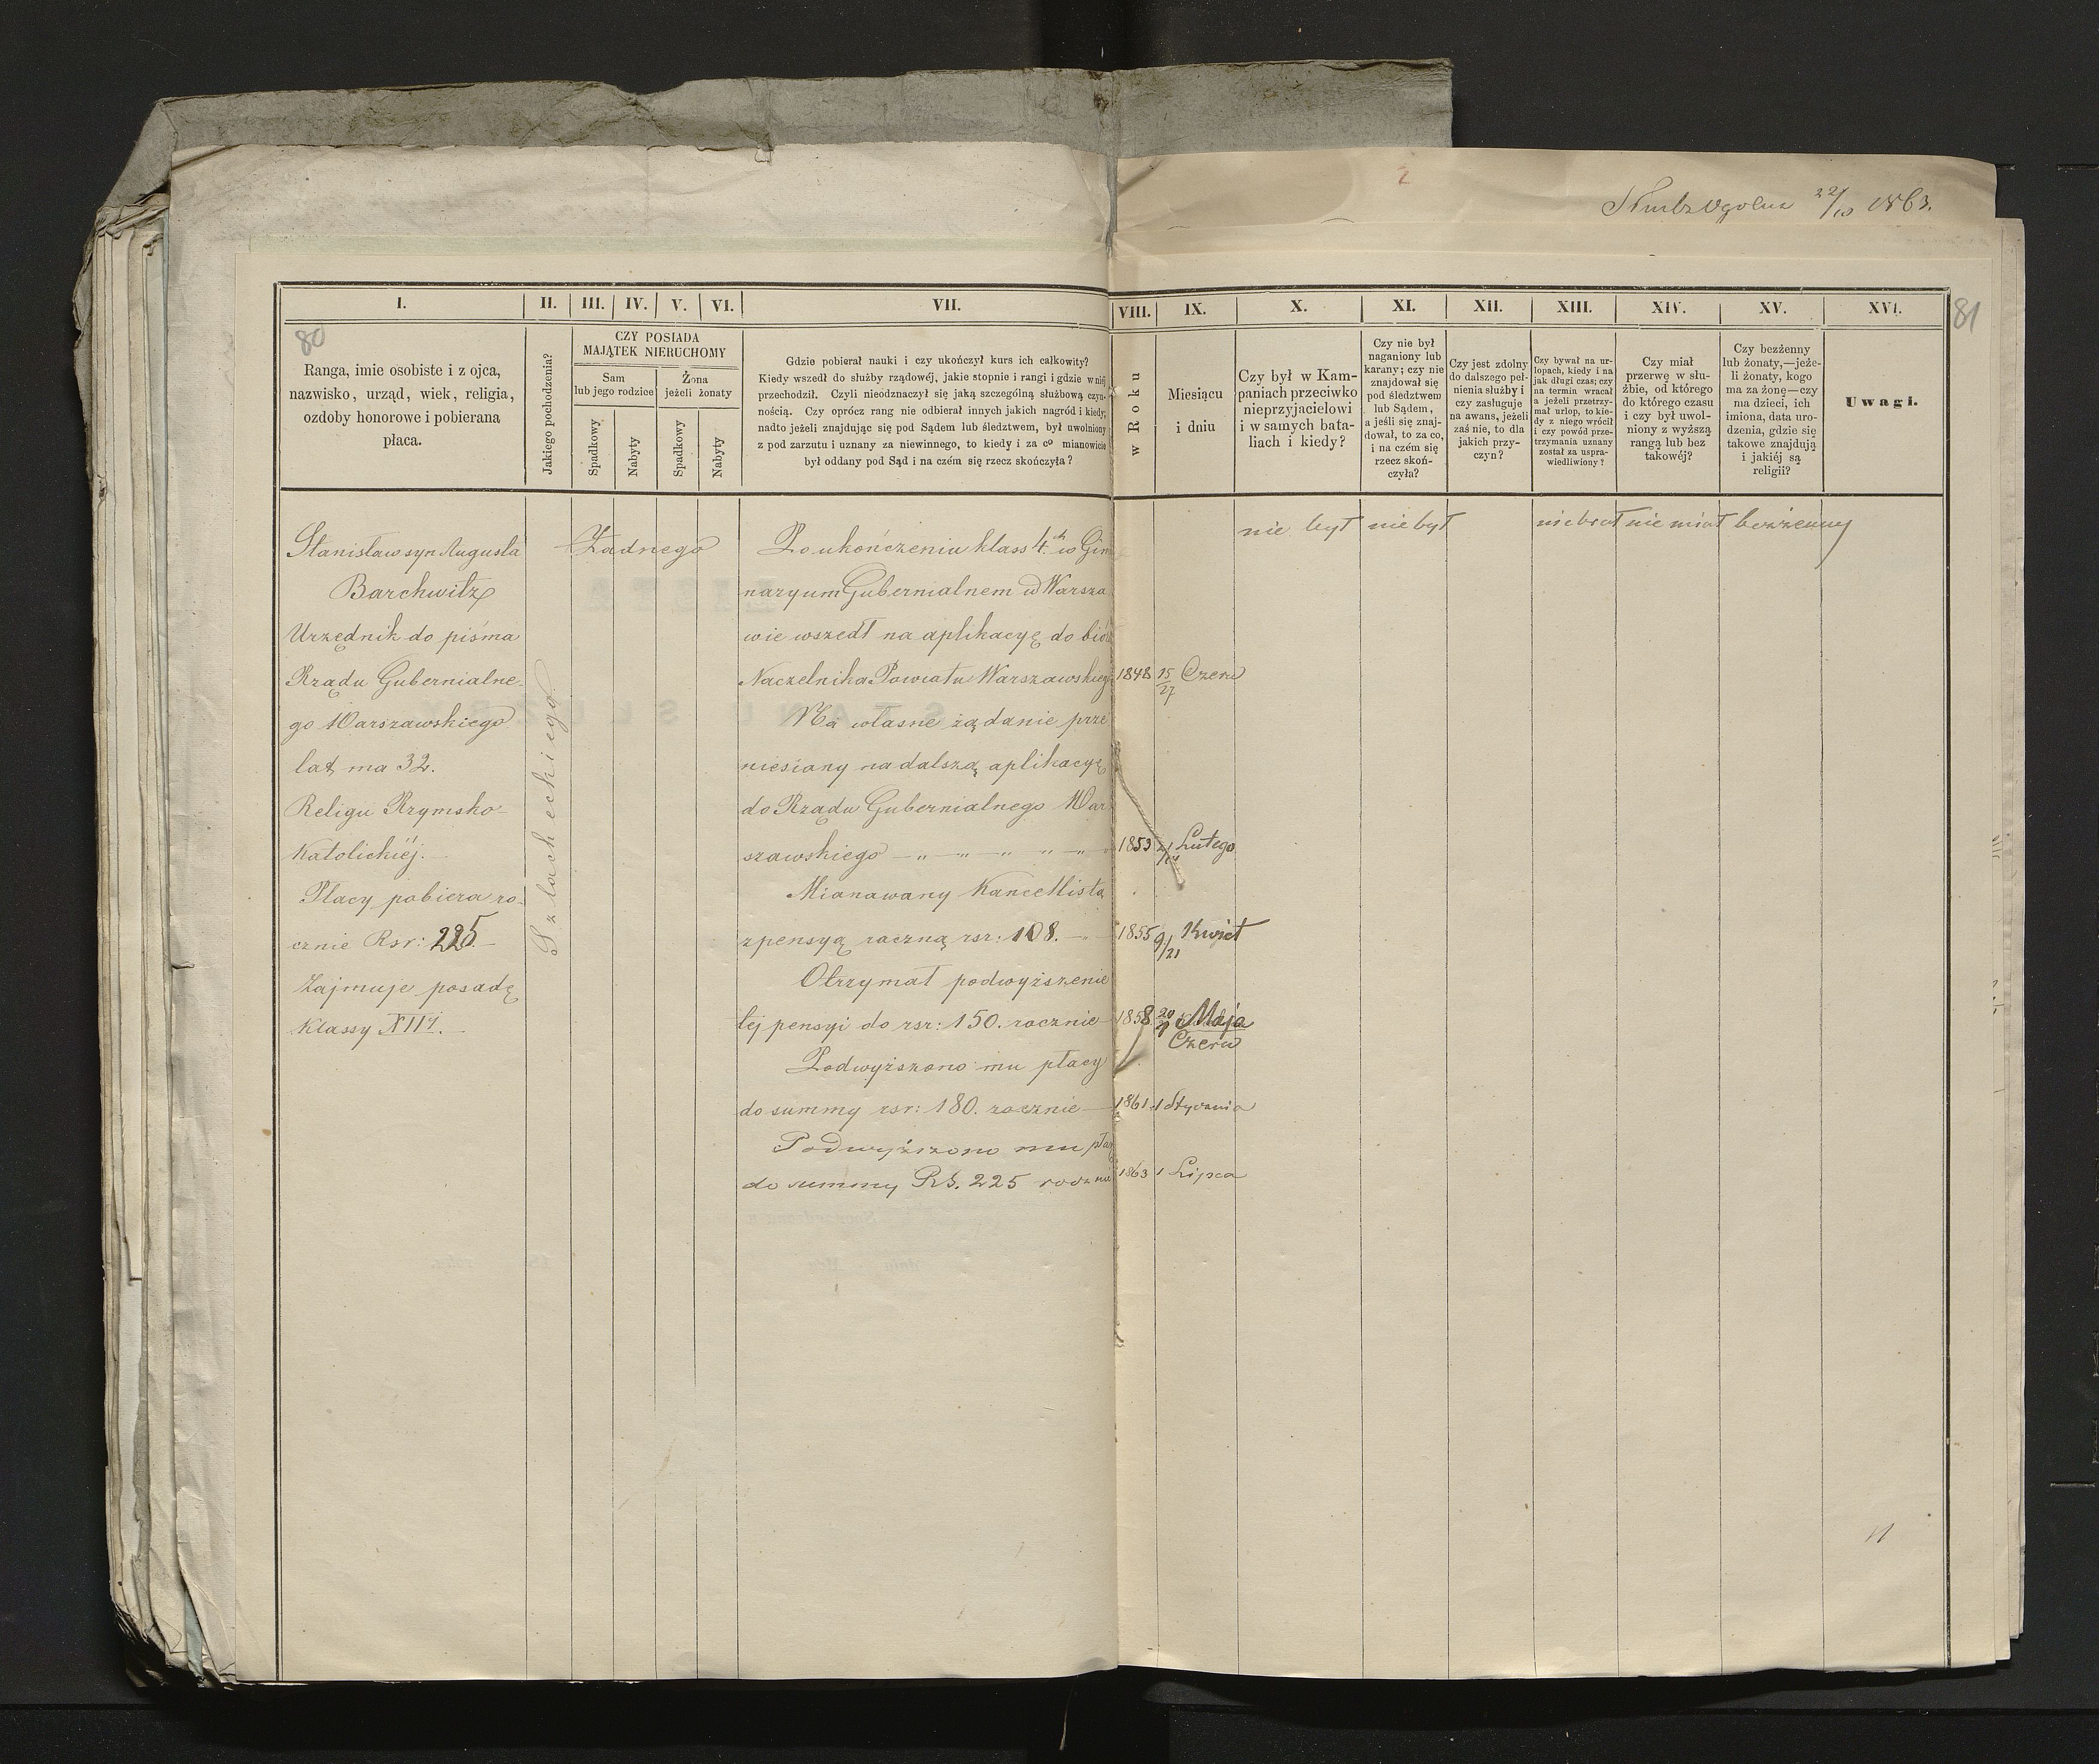 22/10 1863.
80
81
I. II. III. IV. V. VI. VII. VIII. IX. X. XI. XII. XIII. XIV. XV. XVI.
Ranga, imie osobiste i z ojca,
nazwisko, urząd, wiek, religia,
ozdoby honorowe i pobierana
płaca.
Jakiego pochodzenia?
CZY POSIADA
MAJĄTEK NIERUCHOMY
Sam
lub jego rodzice
Żona
jeżeli żonaty
Spadkowy
Nabyty
Spadkowy
Nabyty
Gdzie pobierał nauki i czy ukończył kurs ich całkowity?
Kiedy wszedł do służby rządowéj, jakie stopnie i rangi i gdzie w niéj
przechodził. Czyli nieodznaczył się jaką szczególną służbową czyn-
nością. Czy oprócz rang nie odbierał innych jakich nagród i kiedy,
nadto jeżeli znajdując się pod Sądem lub śledztwem, był uwolniony
z pod zarzutu i uznany za niewinnego, to kiedy i za co mianowicie
był oddany pod Sąd i na czém się rzecz skończyła?
w Roku
Miesiącu
i dniu
Czy był w Kam-
paniach przeciwko
nieprzyjacielowi
i w samych bata-
liach i kiedy?
Czy nie był
naganiony lub
karany; czy nie
znajdował się
pod śledztwem
lub Sądem,
a jeśli się znaj-
dował, to za co,
i na czém się
rzecz skoń-
czyła?
Czy jest zdolny
do dalszego peł-
nienia służby i
czy zasługuje
na awans, jeżeli
zaś nie, to dla
jakich przy-
czyn?
Czy bywał na ur-
lopach, kiedy i na
jak długi czas; czy
na termin wracał
a jeżeli przetrzy-
mał urlop, to kie-
dy z niego wrócił
i czy powód prze-
trzymania uznany
został za uspra-
wiedliwiony?
Czy miał
przerwę w słu-
żbie, od którego
do którego czasu
i czy był uwol-
niony z wyższą
rangą lub bez
takowéj?
Czy bezżenny
lub żonaty,—jeże-
li żonaty, kogo
ma za żonę—czy
ma dzieci, ich
imiona, data uro-
dzenia, gdzie się
takowe znajdują
i jakiéj są
religii?
Uwagi.
Stanisław syn Augusta
Barchwitz
Urzędnik do pisma
Rządu Gubernialne-
go Warszawskiego
lat ma 32.
Religii Rzymsko-
Katolickiéj.
Płacy pobiera ro-
cznie Rsr: 225
Zajmuje posadę
Klassy XIII.
Szlacheckiego
Żadnego
Po ukończeniu klass 4ch w Gim
nazyum Gubernialnem w Warsza
wie wszedł na aplikacyę do biór
Naczelnika Powiatu Warszawskieg 1848 15/27 Czerw
Na własne żądanie prze
niesiony na dalszą aplikacyę
do Rządu Gubernialnego War
szawskiego 1853 Lutego
Mianowany Kancellistą
z pensyą roczną rsr: 108. 1855 9/21 Kwiet
Otrzymał podwyższenie
tej pensyi do rsr: 150. rocznie 1858 20 Maja
Czerw
Podwyższono mu płacy
do summy rsr: 180. rocznie 1861 1 Stycznia
Podwyższono mu płac
do summy RS. 225 rocznie 1863 1 Lipca
nie był nie był nie brał nie miał bezżenny